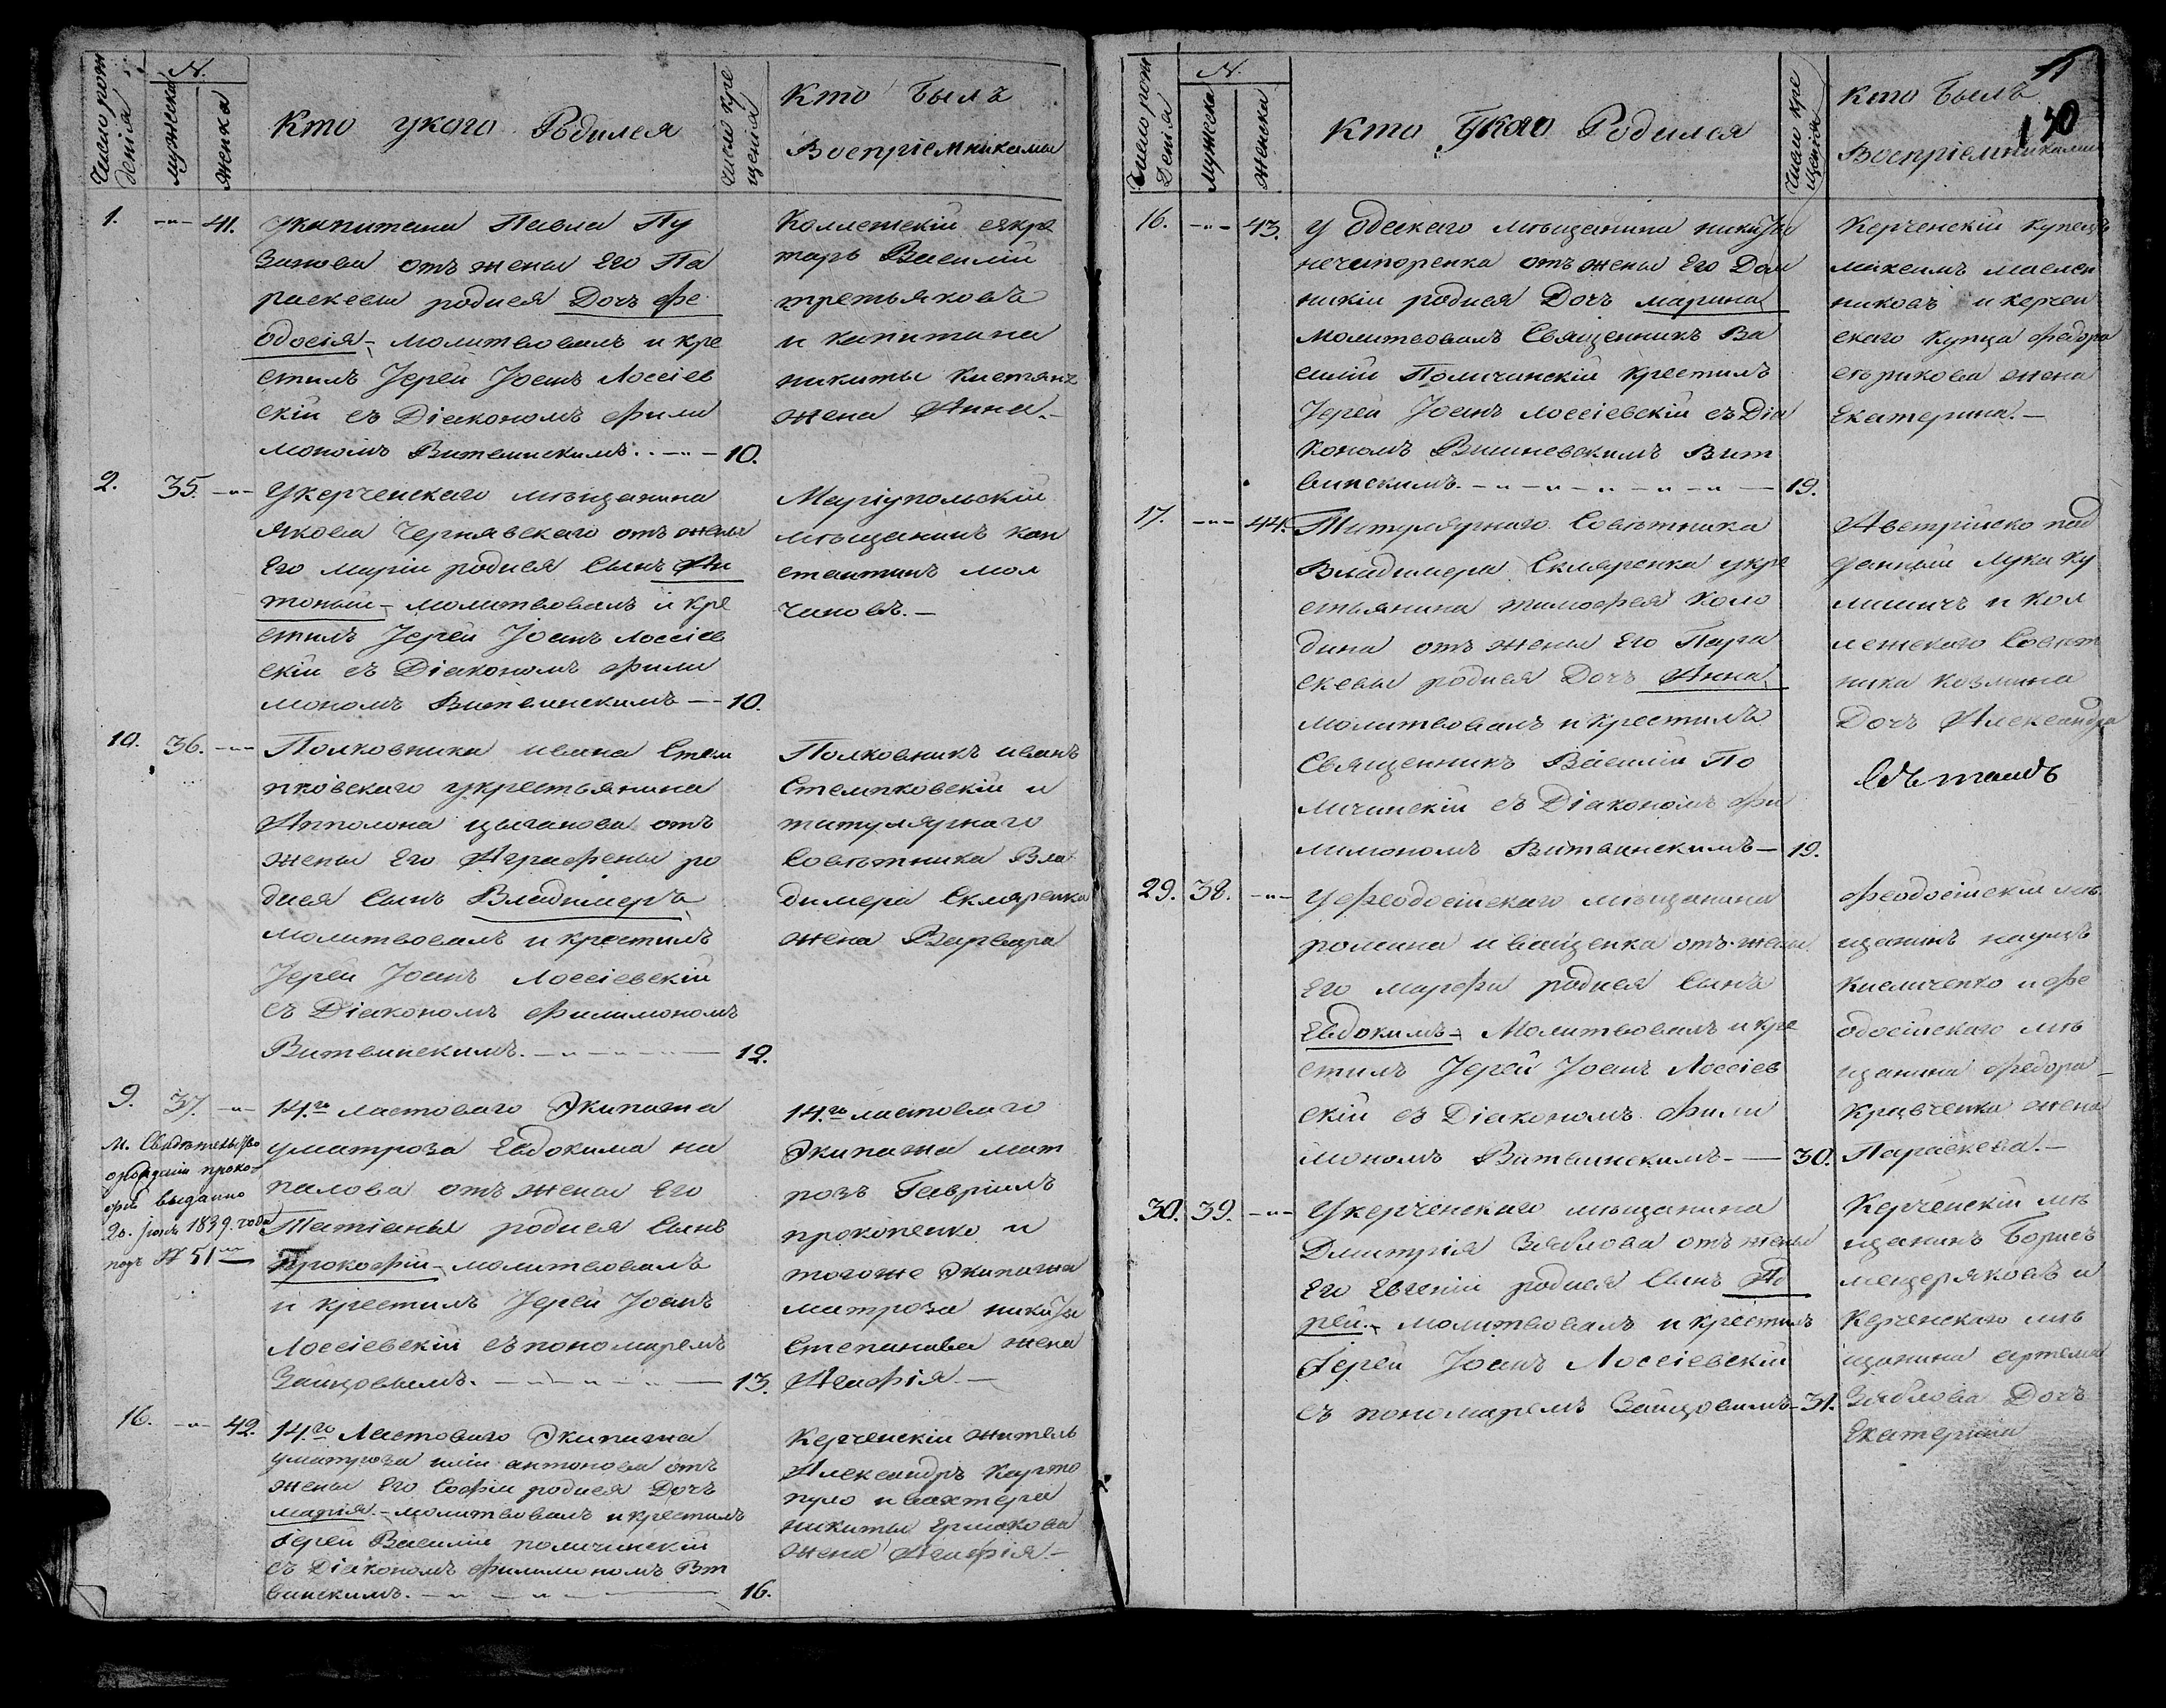 Число рож
денія
№.
мужеска
женска
Кто у кого Родился
Число кре
щенія
Кто былъ
Воспріемниками
1. 41. У капитана Павла Пу
занова отъ жены Его Па
раскевы родися Дочь Фе
одосія - молитвовалъ и кре
стилъ Іерей Іоанъ Лоссіев
скій съ Діакономъ Фили
мономъ Витвинскимъ - 10.
Коллежскій секре
тарь Василий
третьяковъ
и капитана
никиты
жена Анна. -
2. 35. У керченского мѣщанина
якова Чернявскаго отъ жены
Его маріи родися Сынъ Ан
тоный - молитвовалъ и кре
стилъ Іерей Іоанъ лоссіев
скій съ Діакономъ Фили
мономъ Витвинскимъ - 10.
Маріупольскій
мѣщанинъ кон
стантинъ мол
чановъ. -
10. 36. Полковника ивана Стем
пковскаго у крестьянина
Апполона цыганова отъ
жены Его Аграфены ро
дися Сынъ Владимеръ
молитвовалъ и крестилъ
Іерей Іоанъ Лоссіевскій
съ Діакономъ Филимономъ
Витвинскимъ. - 12.
Полковникъ иванъ
Стемпковскій и
титулярнаго
Совѣтника Вла
димера Скляренка
жена Варвара
9. 37. 14.го ластоваго Экипажа
у матроза Евдокима на
палова отъ жены Его
Татіаны родися Сынъ
Прокофій - молитвовалъ
и крестилъ Іерей Іоанъ
Лоссіевскій съ пономаремъ
Зайцовымъ. - 13.
М. Свидѣтельство
о рожденіи проко-
фія выданно
20. іюнь 1839. года
подъ № 51
14.го ластоваго
Экипажа мат
розъ Гавріилъ
прокопенко и
тогоже Экипажа
матроза никиты
Степанова жена
Агафія. -
16. 42. 14.го Ластоваго Экипажа
у матроза иліи антонова отъ
жены Его Софіи родися Дочь
марія. - молитвовалъ и крестилъ
Іерей Василій поличинскій
съ Діакономъ Филимономъ Вит
винскимъ. - 16.
Керченскій житель
Александръ Карто
пуло и вахтера
никиты Ермакова
жена Агафія. -
11
130
Число рож
Денія
№.
мужеска
женска
Кто у кого Родился
Число кре
щенія
Кто былъ
Воспріемниками
16. 43. У Одескаго мѣщанина никиты
нечипоренка отъ жены Его Дом
никіи родися Дочь марина
молитвовалъ Священникъ Ва
силій Поличинскій крестилъ
Іерей Іоанъ лоссіевскій съ Діа
кономъ Вишневскимъ Вит
винскимъ. - 19.
Керченскій купецъ
максимъ маслен
никовъ и керчен
скаго купца Федора
жена
Екатерина. -
17. 44. Титулярнаго Совѣтника
Владимера Скляренка у кре
стьянина тимофея Коло
дина отъ жены Его Пара
скевы родися Дочь Анна
молитвовалъ и крестилъ
Священникъ Василій По
личинскій съ Діакономъ Фи
лимономъ Витвинскимъ - 19.
Австрійско под
данный Лука Ку
лишичъ и кол
лежскаго Совѣт
ника козмина
Дочь Александра
29. 38. У Феодосійскаго мѣщанина
романа иващенка отъ жены
Его марфы родися Сынъ
Евдокимъ - Молитвовалъ и кре
стилъ Іерей Іоанъ Лоссіев
скій съ Діакономъ Фили
мономъ Витвинскимъ - 30.
Феодосійскій мѣ
щанинъ наумъ
Кисличенко и Фе
одосійскаго мѣ
щанина Федора
Кривченка жена
Параскева. -
30. 39. У керченскаго мѣщанина
Дмитрія Зяблова отъ жены
Его Евгеніи родися Сынъ Ан
рей. - молитвовалъ и крестилъ
Іерей Іоанъ Лоссіевскій
съ пономаремъ Зайцовымъ - 31.
Керченскій мѣ
щанинъ Борисъ
мещеряковъ и
Керченскаго мѣ
щанина артема
Зяблова Дочь
Екатерина